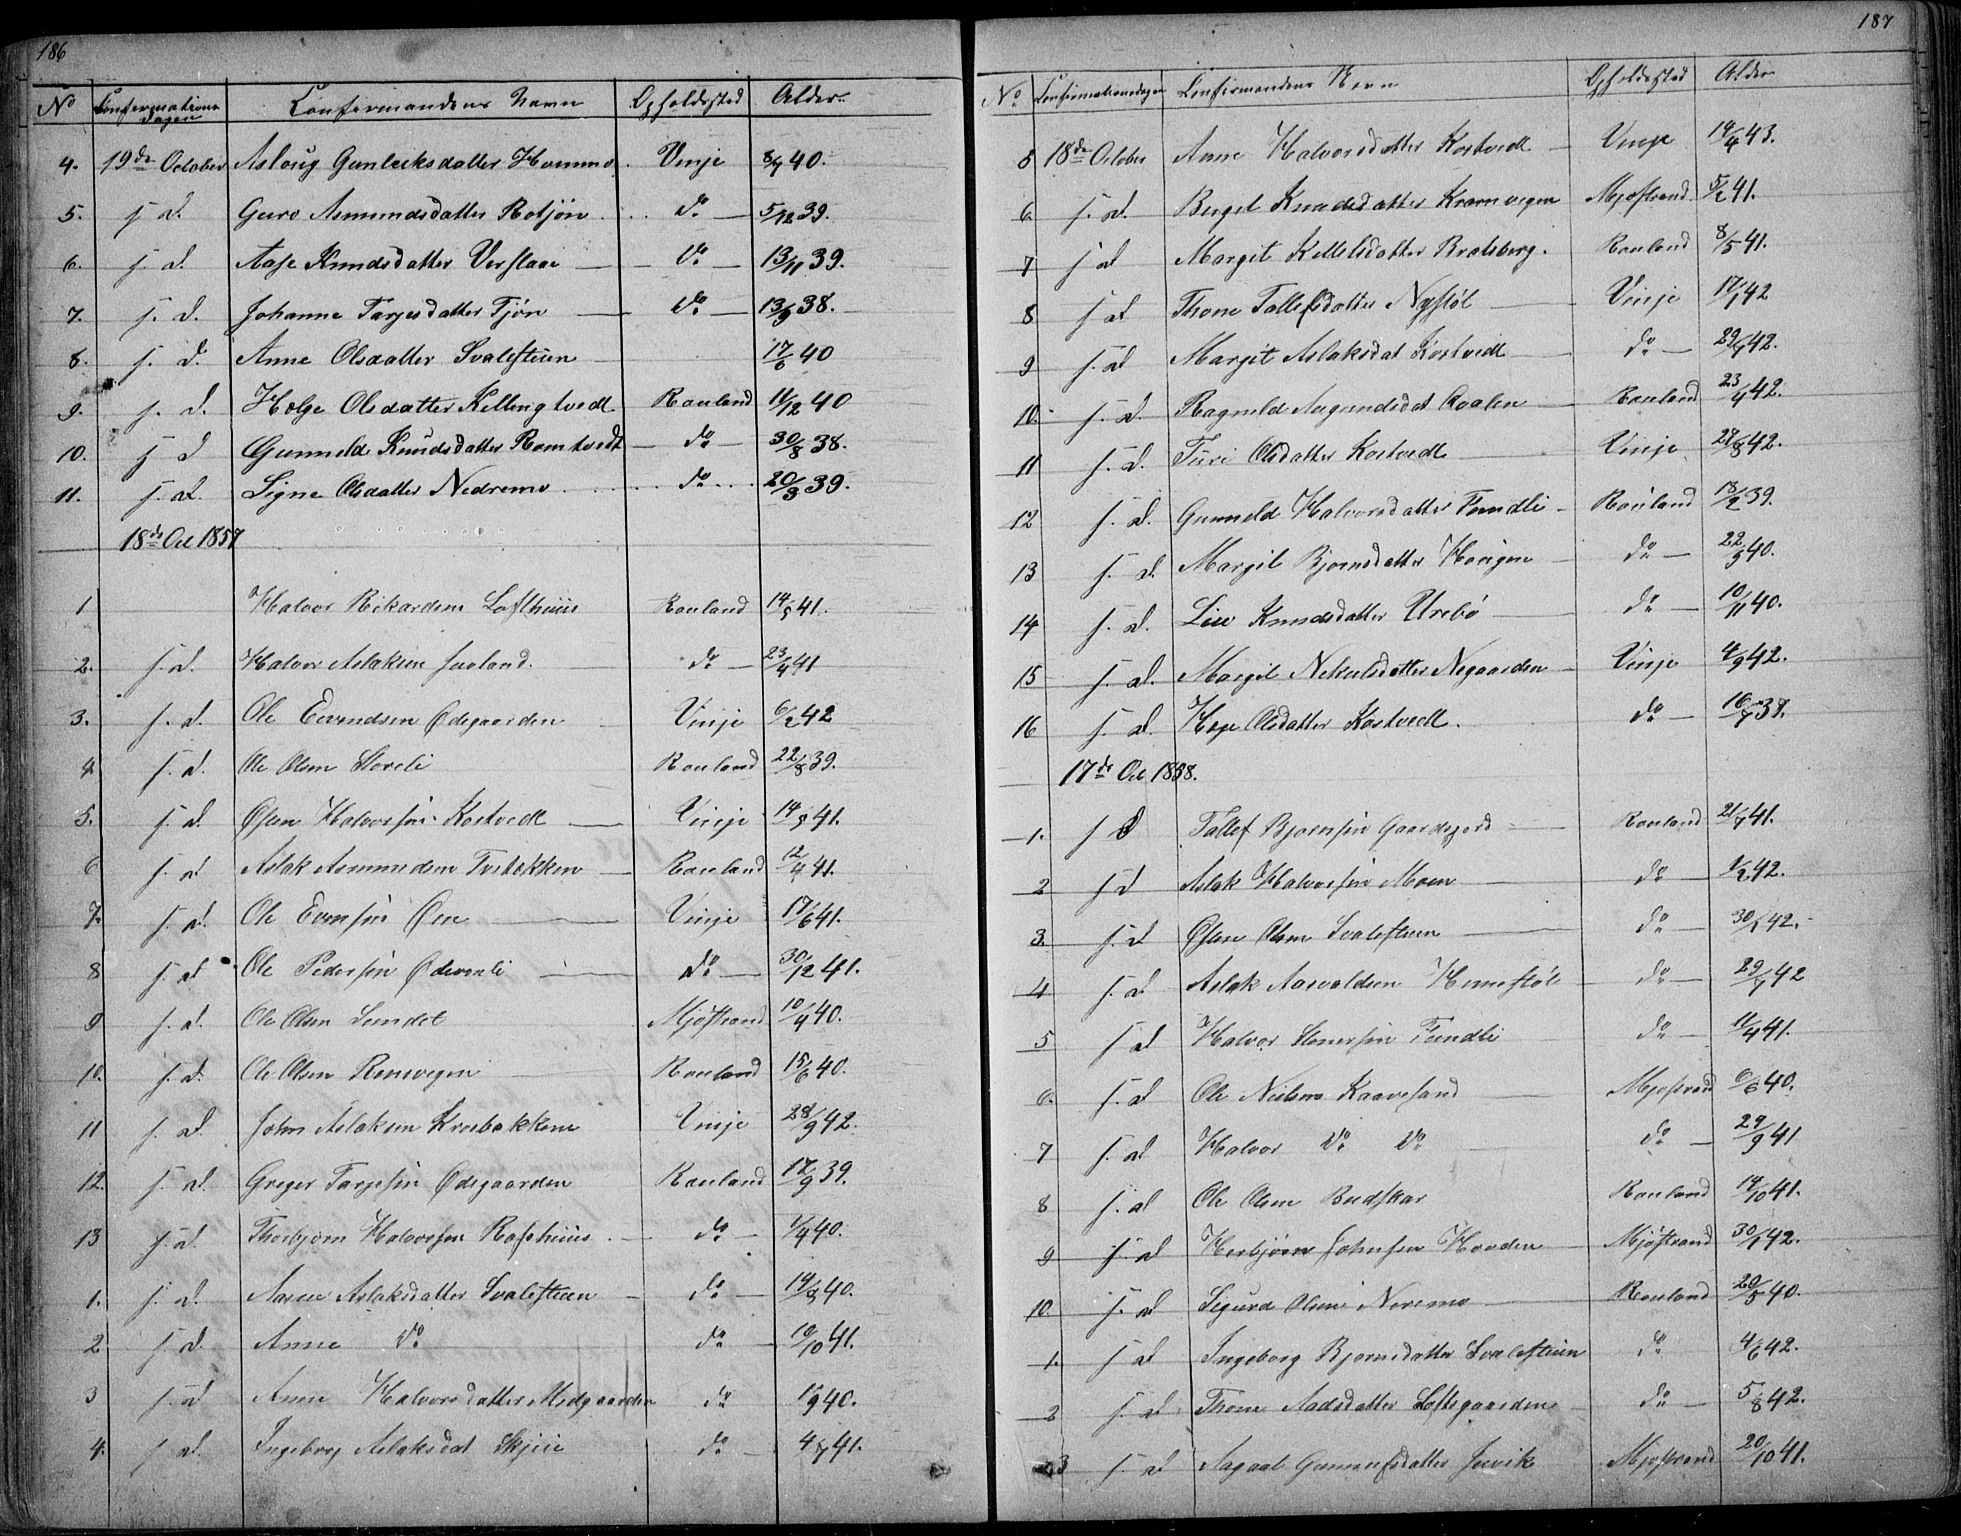 186
No Confirmations dagen Confirmandens Navn Opholdssted Alder
4. 19de October Aslaug Gunleiksdatter Homme Vinje 8/7 40.
5. s. d. Guro Asmundsdatter Rotjøn do 5/12 39.
6. s. d. Aase Knudsdatter Verslaae do 13/11 39.
7. s. d. Johanne Tarjesdatter Tjøn do 13/9 38.
8. s. d. Anne Olsdatter Svalesteen 17/6 40
9. s. d. Hølge Olsdatter Kellingtvedt Rauland 11/12 40
10. s d Gunneld Knudsdatter Romtvedt do 30/8 38.
11. s. d. Signe Olsdatter Nedremo do 20/3 39.
18de Oct 1857
1 Halvor Rikardsen Lofthuus Rauland 14/5 41.
2. s. d. Halvor Aslaksen Juvland. do 23/4 41
3. s. d. Ole Eivendsen Ødegaarden Vinje 6/2 42
4 s. d. Ole Olsen Storeli Rauland 22/8 39.
5. s. d. Øsen Halvorsøn Kostvedt Vinje 14/5 41.
6 s. d. Aslak Asmundsen Rauland 12/4 41.
7. s. d. Ole Evensøn Øen Vinje 17/6 41.
8 s. d Ole Pedersøn do 30/12 41.
9 s. d. Ole Olsen Sundet Mjøstrand 10/4 40.
10. s. d. Ole Olsen Rensvegen Rauland 15/6 40.
11 s. d. John Aslaksen Krosbakkene Vinje 28/9 42.
12. s. d. Greger Tarjesøn Ødegaarden Rauland 17/9 39.
13 s. d. Thorbjørn Halvorsen Roshuus do 1/9 40.
1. s. d. Aasne Aslaksdatter Svalesteen do 14/3 40.
2 s d. Anne do do 10/10 41.
3 s. d Anne Halvorsdatter Midgaarden do 1/9 40.
4. s d. Ingeborg Aslaksdat Skjeie do 4/8 41.
187
No Confirmationsdagen Confirmandens Navn Opholdssted Alder
5 18de October Anne Halvorsdatter Kostvedt Vinje 14/4 43.
6. s. d. Birgit Knudsdatter Kromvigen Mjøstrand 5/2 41.
7 s d Margit Kittelsdatter Bratsberg. Rauland 8/5 41.
8 s d Thone Tallefsdatter Nystøl Vinje 17/1 42
9 s. d Margit Aslaksdat Kostvedt do 29/7 42.
10. s. d Ragnild Aagundsdat Qvalen Rauland 23/4 42.
11 s. d. Turi Olsdatter Kostvedt Vinje 27/8 42.
12 s. d. Gunneld Halvorsdatter Fundli Rauland 18/2 39.
13 s. d. Margit Bjørnsdatter Havigen do 22/3 40.
14 s. d. Live Knudsdatter Urebø do 10/11 40.
15 s. d. Margit Nikulsdatter Negaarden Vinje 4/9 42.
16 s. d. Hæge Olsdatter Kostvedt. do 16/7 38.
17de Oct 1858.
1. s d Tallef Bjørnsøn Gaardsjord Rauland 21/7 41.
2 s d Aslak Halvorsøn Moen do 1/2 42.
3. s. d Øsen Olsen Svalesteen do 30/1 42.
4 s. d Aslak Aasvaldsen do 29/7 42
5 s d Halvor Stenersøn Fundli do 11/4 41.
6. s. d Ole Nielsen Kaavesand Mjøstrand 6/6 40.
7 s. d Halvor do do do 29/9 41
8 s. d Ole Olsen Budskar Rauland 14/10 41.
9 s. d Herbjørn Johnsen Hovden Mjøstrand 30/1 42.
10. s. d Sigurd Olsen Noremo Rauland 20/5 40.
1. s d Ingeborg Bjørnsdatter Svalesteen do 4/6 42.
2 s. d Thone Aadsdatter Loftsgaarden do 5/8 42.
3 s. d Aagaat Gunnufsdatter Juvik Mjøstrand 20/10 41.